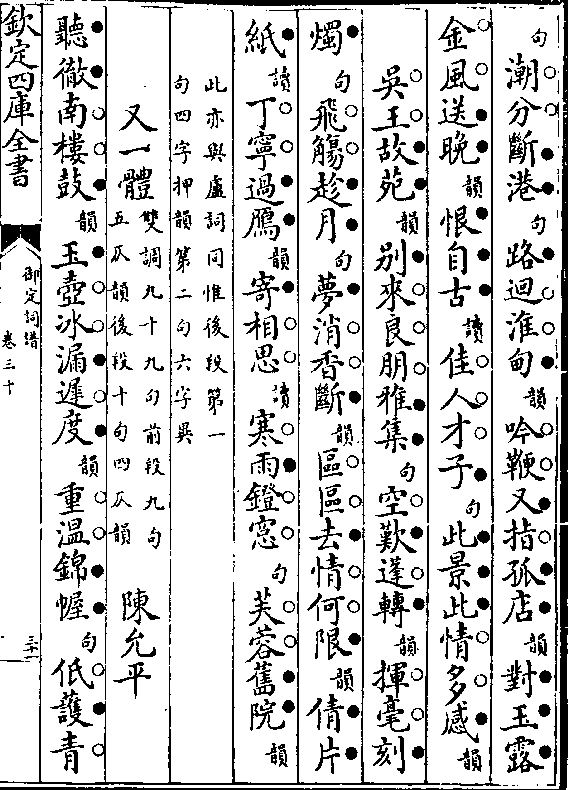 句潮分斷港句路迴淮甸韻吟鞭又指孤店韻對玉露
金風送晚韻恨自古讀佳人才子句此景此情多感韻
吳王故苑韻別來良朋雅集句空歎蓬轉韻揮毫刻
燭句飛觴趁月句夢消香斷韻區區去情何限韻倩片
紙讀丁寧過鴈韻寄相思讀寒雨鐙窓句芙蓉舊院韻
此亦與盧詞同惟後段第一
句四字押韻第二句六字異
又一體雙調九十九句前段九句
五仄韻後段十句四仄韻
陳允平
聽徹南樓鼓韻玉壺冰漏遲度韻重溫錦幄句低護青
欽定四庫全書
御定詞譜
卷三十
三十二